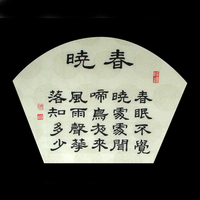 春曉
春眠不覺
曉處處聞
啼鳥夜來
風雨聲華
落知多少